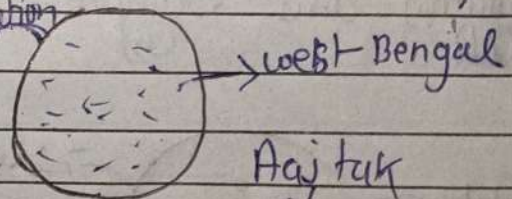 West Bengal
Aaj tak